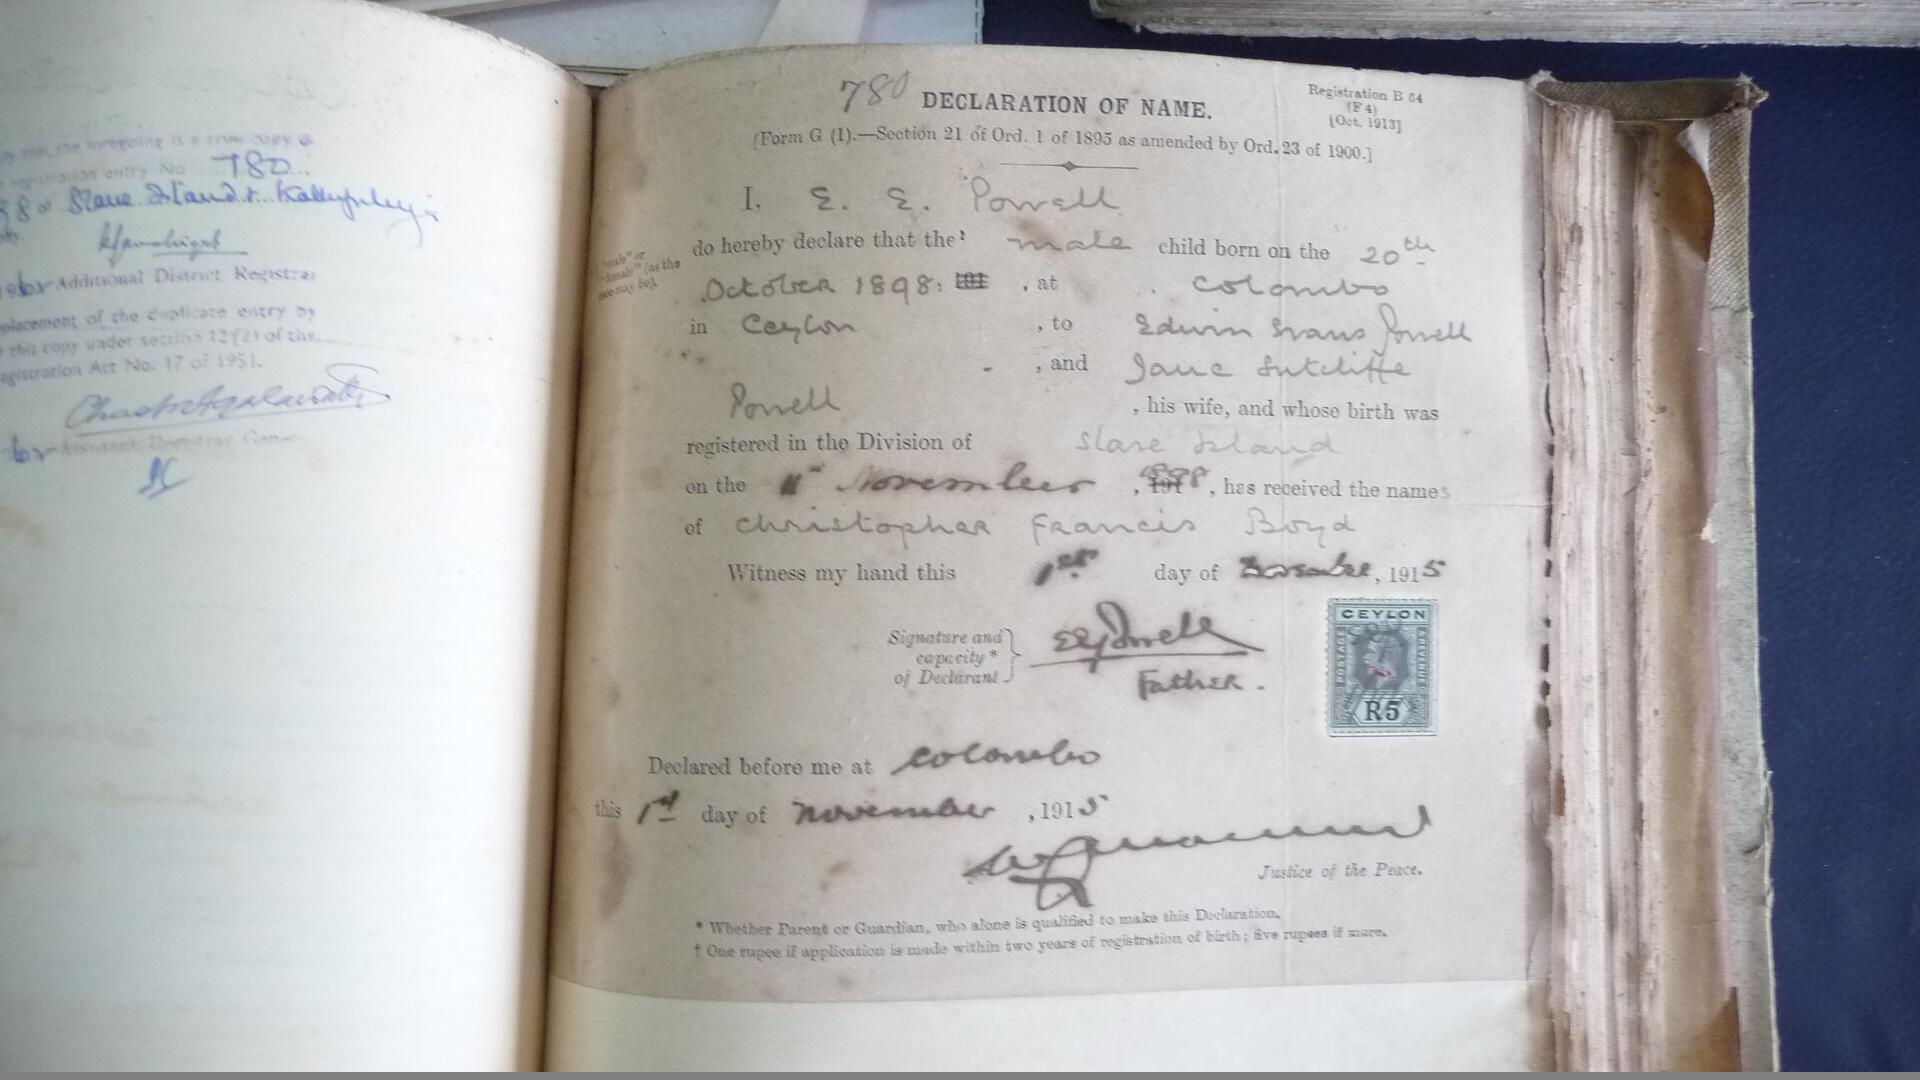 that the foregoing is a true copy of
registration entry No 780...
58 of Slave Island & Kollupitiya
for Additional District Registrar
placement of the duplicate entry by
this copy under section 12 (2) of the
Registration Act No. 17 of 1951.
for Assistant Registrar General
780 DECLARATION OF NAME.
Registration B 64
(F 4)
[Oct. 1913]
[Form G (1).—Section 21 of Ord. 1 of 1895 as amended by Ord. 23 of 1900.]
I, E. E. Powell
"male" or "female" (as the case may be).
do hereby declare that the male child born on the 20th
October 1898. , at Colombo
in Ceylon , to Edwin Evans Powell
, and Jane Sutcliffe
Powell , his wife, and whose birth was
registered in the Division of Slave Island
on the November , 1898, has received the names
of Christopher Francis Boyd
Witness my hand this 1st day of November, 1915
Signature and
capacity *
of Declarant
E E Powell
Father.
CEYLON
POSTAGE
REVENUE
R5
Declared before me at Colombo
this 1st day of November , 1915
Justice of the Peace.
* Whether Parent or Guardian, who alone is qualified to make this Declaration.
† One rupee if application is made within two years of registration of birth; five rupees if more.